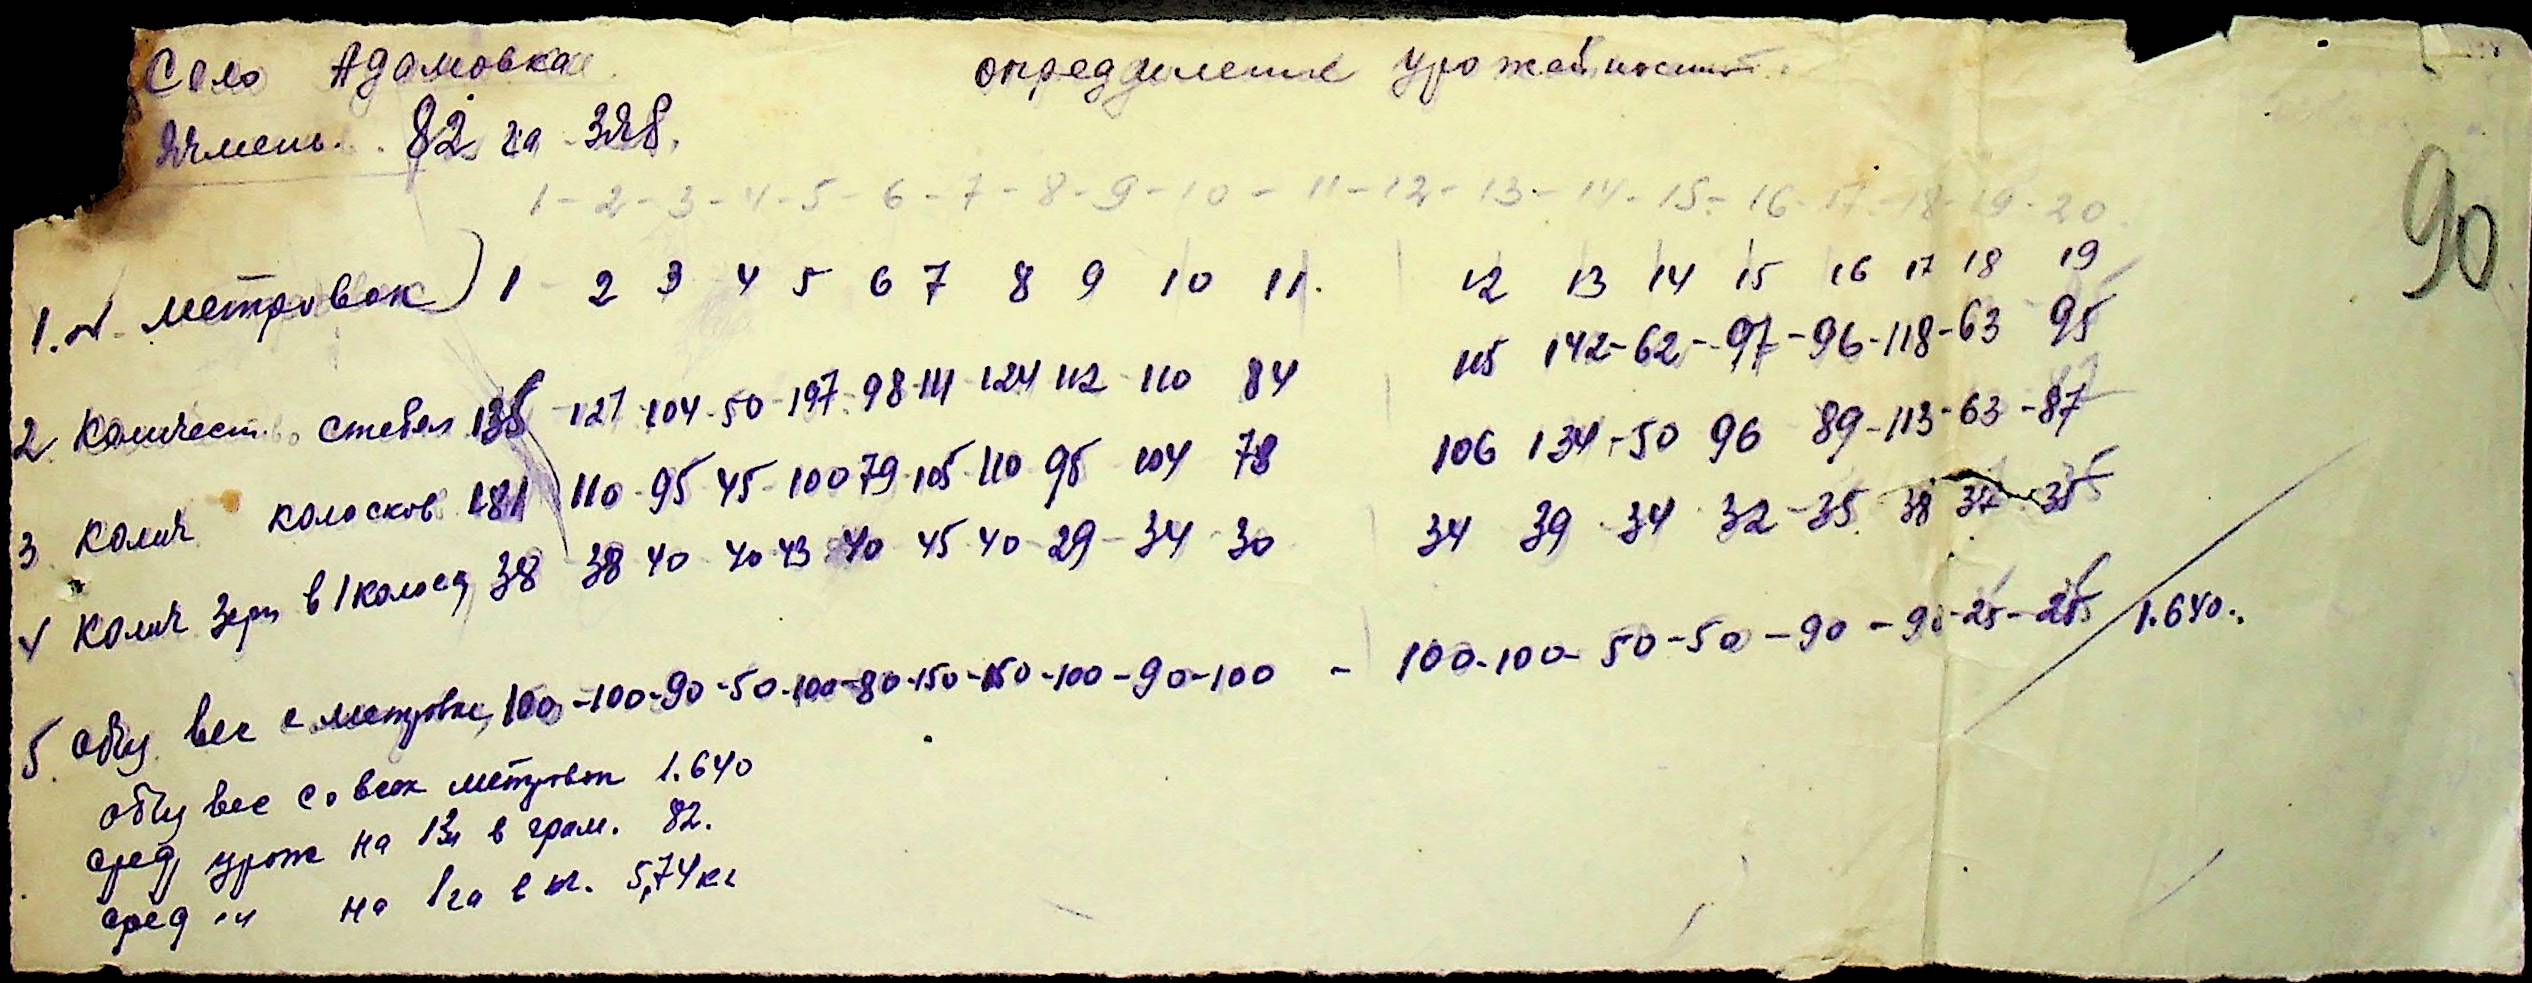 Село Адамовка определение урожайности
Ячмень. 82 га
1-2-3-4-5-6-7-8-9-10-11-12-13-14-15-16-17-18-19-20
90
1. № метровок) 1 2 3 4 5 6 7 8 9 10 11. 12 13 14 15 16 17 18 19
2. Количество стебел 135 -127 -104-50-197-98-111-124 112-110 84 115 142-62-97-96-118-63 95
3 Колич колосков 181 110-95 45-100 79-105-110 95 104 78 106 134-50 96 89-113-63-87
4 Колич зерн в 1 колосе 38 38 40 40 43 40 45 40-29-34-30 34 39-34 32-35 38 37 35
5. Общ вес с метровки 100-100-90-50-100-80-150-150-100-90-100 - 100-100-50-50-90-90-25-25 1.640.
общ вес со всех метровок 1.640
сред урож на в грам. 82.
сред на 1 га в кг. 5,74 кг